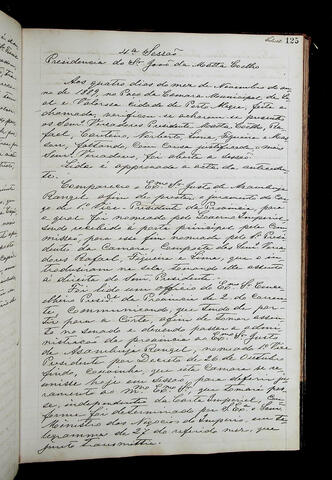 125
4ª Sessão
Presidencia do Sr. José da Motta Coelho
Aos quatro dias do mez de Novembro do an
no de 1889 no Paço da Camara Municipal da Le
al e Valorosa Cidade de Porto Alegre, feita a
chamada, verificou-se acharem-se presente
os Senrs. Vereadores Presidente Motta Coelho Ra
fael, Norberto, Lima, Figueira e
faltando com causa justificada os mais
Senrs. Vereadores, foi aberta a sessão
Lida é approvada a acta da antecede
te.
Compareceo o Exmo. Sr. Justo de Azambuja
Rangel afim de prestar juramento do Car
go de 1º Vice-Presidente da Provincia, para
o qual foi nomeado pelo Governo Imperial,
sendo recebido á porta principal pela Com
missão, para esse fim nomeada pelo Sr. Presi
dente da Camara, Composta dos Senrs. Verea
dores Rafael, Figueira e Lima, que o in
troduziram na sala tomando elle assento
á direita do Senr. Presidente.
Foi lido um officio do Exmo. Sr. Conse
lheiro Presidte. da Provincia de 2 do corren
te, communicando que tendo de par
tir para a Corte, afim de tomar assen
to no senado e devendo passar a admi
nistração da provincia ao Exmo. Sr. Justo
de Azambuja Rangel, nomeado 1º Vice
Presidente por Decreto de 26 de Outubro
findo, Convinha, que esta Camara se re
unisse hoje em sessão para deferir ju
ramento ao mesmo Exmo. Sr. que tomará pos
se, independente da Carta Imperial, Con
forme foi determinado por S. Exa. o Senr.
Ministro dos Negocios do Imperio, em te
legramma de 27 do referido mez, que
junto transmittio.